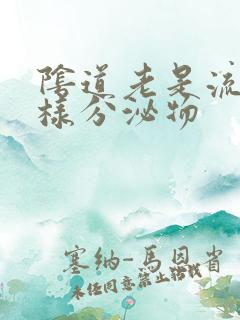 陰道老是流
樣分泌物
塞纳-馬恩省
未经同意禁止转载